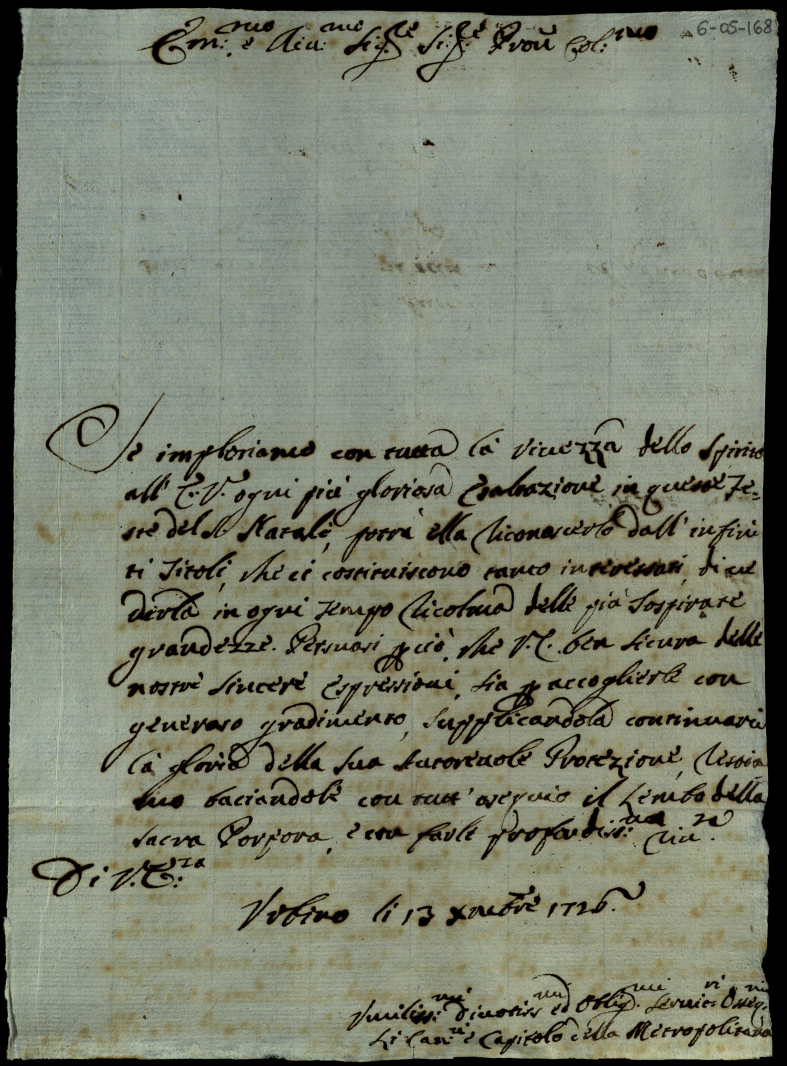 6-05-168
Em:mo e Riu:mo Sig:re Sig:re Prōn Col:mo
Se imploriamo con tutta la viuezza dello Spirito
all' E. V. ogni più gloriosa Esaltazione in queste Fe=
ste del S. Natale, potrà ella riconoscerlo dall' infini
ti Titoli, che ci costituiscono tanto interessati, di ue
derla in ogni tempo ricolma delle più sospirate
grandezze. Persuasi perciò, che V. E. ben sicura delle
nostre sincere espressioni, sia per accoglierle con
generoso gradimento, supplicandola continuarci
la gloria della sua Autoreuole Protezione, restia
mo baciandole con tutt' ossequio il Lembo della
sacra Porpora, e con farle profondiss:ma riu:za
Di V. E:za
Vrbino li 13 Xmbre 1726.
Vmiliss:mi Diuotiss:mi ed Oblig:mi Seruit:ri Osseq:mi
Li Can:ci e Capitolo della Metropolitana